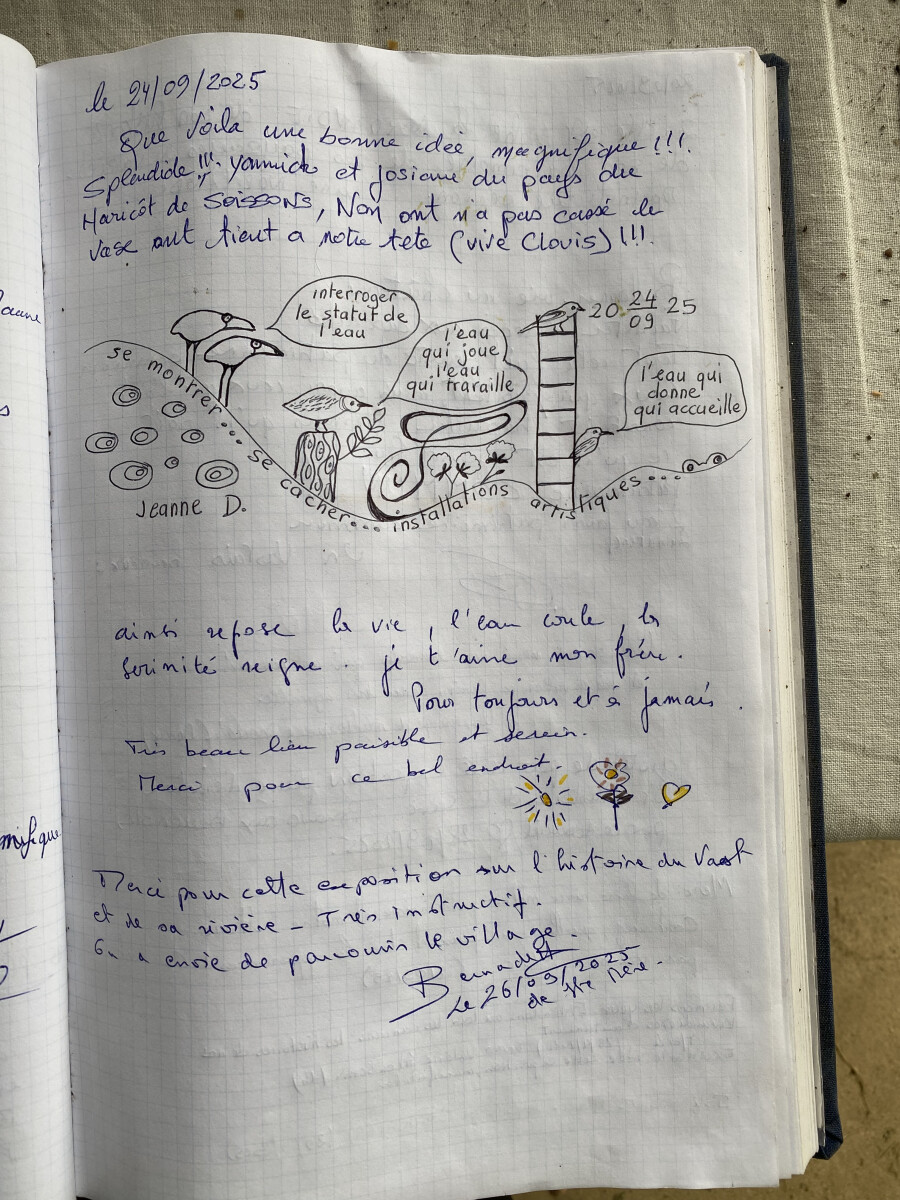 le 24/09/2025
Que voila une bonne idée, magnifique !!!
Splendide !!! Yannick et Josiane du pays du
Haricôt de SOISSONS, Non ont n'a pas cassé le
Vase ont tient a notre tete (vive Clovis) !!!
interroger
le statut de
l'eau
l'eau
qui joue
l'eau
qui travaille
20 24/09 25
l'eau qui
donne
qui accueille
se montrer... se cacher... installations artistiques...
Jeanne D.
ainsi repose la vie, l'eau coule, la
serinité reigne. je t'aime mon frére.
Pour toujours et à jamais.
Très beau lieu paisible et serein.
Merci pour ce bel endroit.
Merci pour cette exposition sur l'histoire du Vast
et de sa rivière - Très instructif.
On a envie de parcourir le village.
Bernadette
Le 26/09/2025
de
Jaune